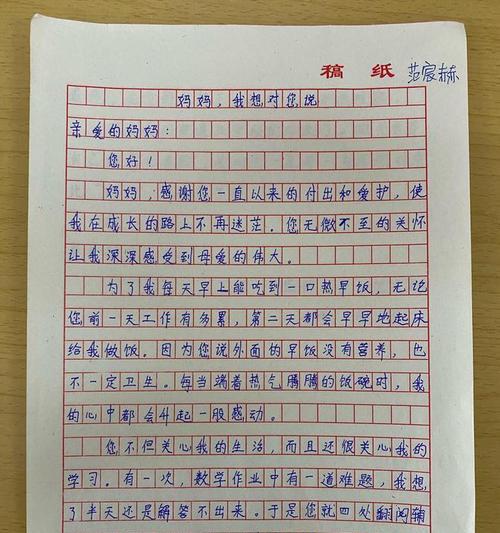 稿纸 范宸赫
妈妈，我想对您说
亲爱的妈妈：
您好！
妈妈，感谢您一直以来的付出和爱护，使
我在成长的路上不再迷茫。您无微不至的关怀
让我深深感受到母爱的伟大。
为了我每天早上能吃到一口热早饭，无说
您前一天工作有多累，第二天都会早早地起床
给我做饭。因为您说外面的早饭没有营养，也
不一定卫生。每当端着热气腾腾的饭碗时，我
的心中都会升起一股感动。
您不但关心我的生活，而且还很关心我的
学习。有一次，数学作业中有一道难题，我想
了半天还是解答不出来。于是您就四处翻阅辅